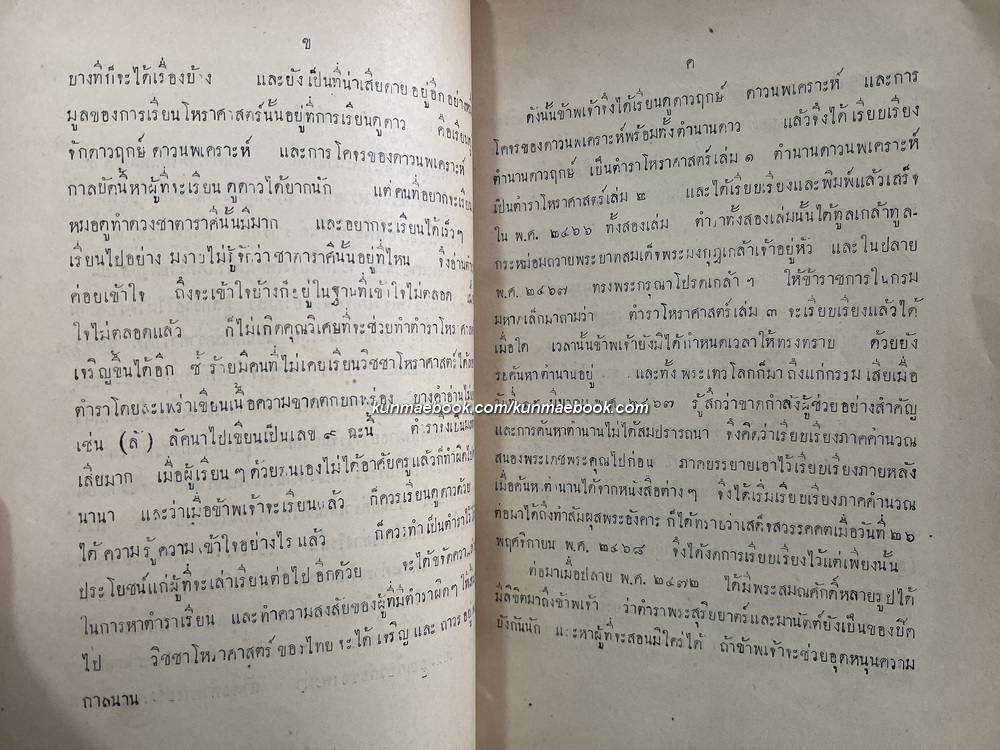 ข
บางทีก็จะได้เรื่องบ้าง และยังเป็นที่น่าเสียดายอยู่อีกอย่าง
มูลของการเรียนโหราศาสตร์นั้นอยู่ที่การเรียนดูดาว คือเรียน
จักดาวฤกษ์ ดาวนพเคราะห์ และการโคจรของดาวนพเคราะห์
กาลบัดนี้หาผู้ที่จะเรียนดูดาวได้ยากนัก แต่คนที่อยากจะเรียน
หมอดูทำดวงชาตาราศีนั้นมีมาก และอยากจะเรียนได้เร็วๆ
เรียนไปอย่างมงายไม่รู้จักว่าชาตาราศีนั้นอยู่ที่ไหน จึงอ่านตำ
ค่อยเข้าใจ ถึงจะเข้าใจบ้างก็อยู่ในฐานที่เข้าใจไม่ตลอด
ใจไม่ตลอดแล้ว ก็ไม่เกิดคุณวิเศษที่จะช่วยทำตำราโหราศาส
เจริญขึ้นได้อีก ซ้ำร้ายมีคนที่ไม่เคยเรียนวิชชาโหราศาสตร์ได้
ตำราโดยสะเพร่าเขียนเนื้อความขาดตกบกพร่อง บางคำอ่านไม่
เช่น (ลั) ลัคนาไปเขียนเป็นเลข ๙ ฉะนี้ ตำราจึงเป็นมล
เสียมาก เมื่อผู้เรียนๆ ด้วยตนเองไม่ได้อาศัยครูแล้วก็ทำผิดไป
นานา และว่าเมื่อข้าพเจ้าจะเรียนแล้ว ก็ควรเรียนดูดาวด้วย
ได้ความรู้ความเข้าใจอย่างไรแล้ว ก็ควรทำเป็นตำราไว้
ประโยชน์แก่ผู้ที่จะเล่าเรียนต่อไปอีกด้วย จะได้ขจัดความ
ในการหาตำราเรียน และทำความสงสัยของผู้ที่มีตำราผิดๆ ให้
ไป วิชชาโหราศาสตร์ของไทยจะได้เจริญและถาวรอยู่
กาลนาน
ค
ดังนั้นข้าพเจ้าจึงได้เรียนดูดาวฤกษ์ ดาวนพเคราะห์ และการ
โคจรของดาวนพเคราะห์พร้อมทั้งตำนานดาว แล้วจึงได้เรียบเรียง
ตำนานดาวฤกษ์ เป็นตำราโหราศาสตร์เล่ม ๑ ตำนานดาวนพเคราะห์
เป็นตำราโหราศาสตร์เล่ม ๒ และได้เรียบเรียงและพิมพ์แล้วเสร็จ
ใน พ.ศ. ๒๔๖๖ ทั้งสองเล่ม ตำราทั้งสองเล่มนั้นได้ทูลเกล้าทูล-
กระหม่อมถวายพระบาทสมเด็จพระมงกุฎเกล้าเจ้าอยู่หัว และในปลาย
พ.ศ. ๒๔๖๗ ทรงพระกรุณาโปรดเกล้าฯ ให้ข้าราชการในกรม
มหาดเล็กมาถามว่า ตำราโหราศาสตร์เล่ม ๓ จะเรียบเรียงแล้วได้
เมื่อใด เวลานั้นข้าพเจ้ายังมิได้กำหนดเวลาให้ทรงทราบ ด้วยยัง
รอค้นหาตำนานอยู่ และทั้งพระเทวโลกก็มาถึงแก่กรรมเสียเมื่อ
พ.ศ. ๒๔๖๗ รู้สึกว่าขาดกำลังผู้ช่วยอย่างสำคัญ
และการค้นหาตำนานไม่ได้สมปรารถนา จึงคิดว่าเรียบเรียงภาคคำนวณ
สนองพระเดชพระคุณไปก่อน ภาคบรรยายเอาไว้เรียบเรียงภายหลัง
เมื่อค้นหาตำนานได้จากหนังสือต่างๆ จึงได้เริ่มเรียบเรียงภาคคำนวณ
ต่อมาได้ถึงทำสัมผุสพระอังคาร ก็ได้ทราบว่าเสด็จสวรรคตเมื่อวันที่ ๒๖
พฤศจิกายน พ.ศ. ๒๔๖๘ จึงได้งดการเรียบเรียงไว้แต่เพียงนั้น
ต่อมาเมื่อปลาย พ.ศ. ๒๔๗๒ ได้มีพระสมณศักดิ์หลายรูปได้
มีลิขิตมาถึงข้าพเจ้า ว่าตำราพระสุริยยาตร์และมานัตต์ยังเป็นของปิด
บังกันนัก และหาผู้ที่จะสอนมิใคร่ได้ ถ้าข้าพเจ้าจะช่วยอุดหนุนความ
kunmaebook.com/kunmaebook.com